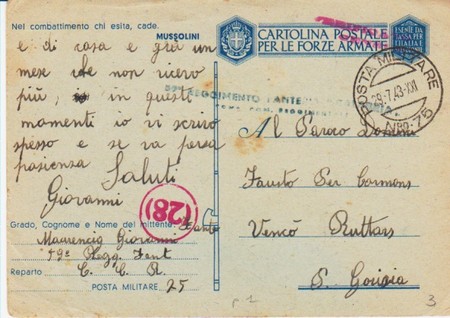 Nel combattimento chi esita, cade.
MUSSOLINI
e di casa e già un
mese che non ricevo
più, in questi
momenti io vi scrivo
spesso e se va persa
pasienza Saluti
Giovanni
28
Grado, Cognome e Nome del mittente: Fante
Giovanni
79º Regg. Fant
Reparto C. C. R.
POSTA MILITARE 25
CARTOLINA POSTALE
PER LE FORZE ARMATE
ESENTE DA
TASSA PER
L'ITALIA
REGGIMENTO FANTERIA
POSTA MILITARE
29.7.43.XXI
Nro. 75
Al
Fausto Per Cormons
Vencò Ruttars
S. Gorisia
3